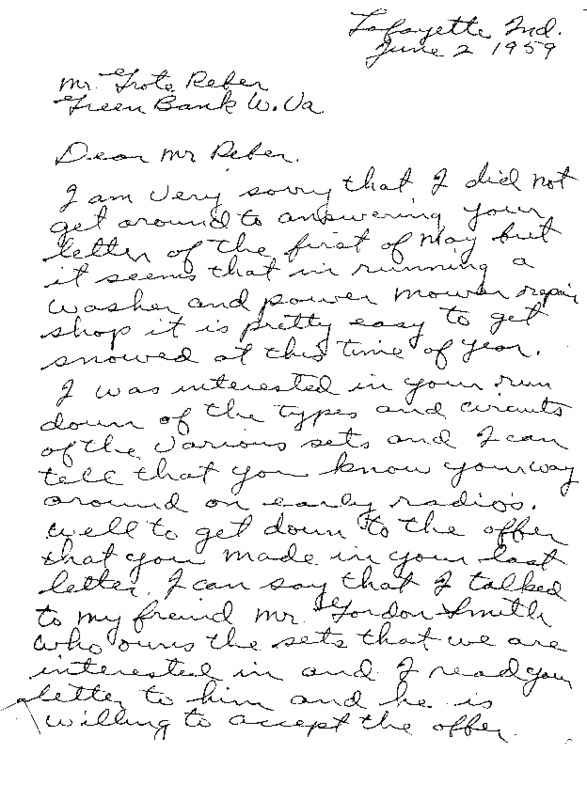 Lafayette Ind.
June 2 1959
Mr. Grote Reber
Green Bank W. Va
Dear Mr Reber.
I am very sorry that I did not
get around to answering your
letter of the first of May but
it seems that in running a
washer and power mower repair
shop it is pretty easy to get
snowed at this time of year.
I was interested in your run
down of the types and circuits
of the various sets and I can
tell that you know your way
around on early radio's.
well to get down to the offer
that you made in your last
letter. I can say that I talked
to my freind Mr. Gordon Smith
who owns the sets that we are
interested in and I read your
letter to him and he is
willing to accept the offer.